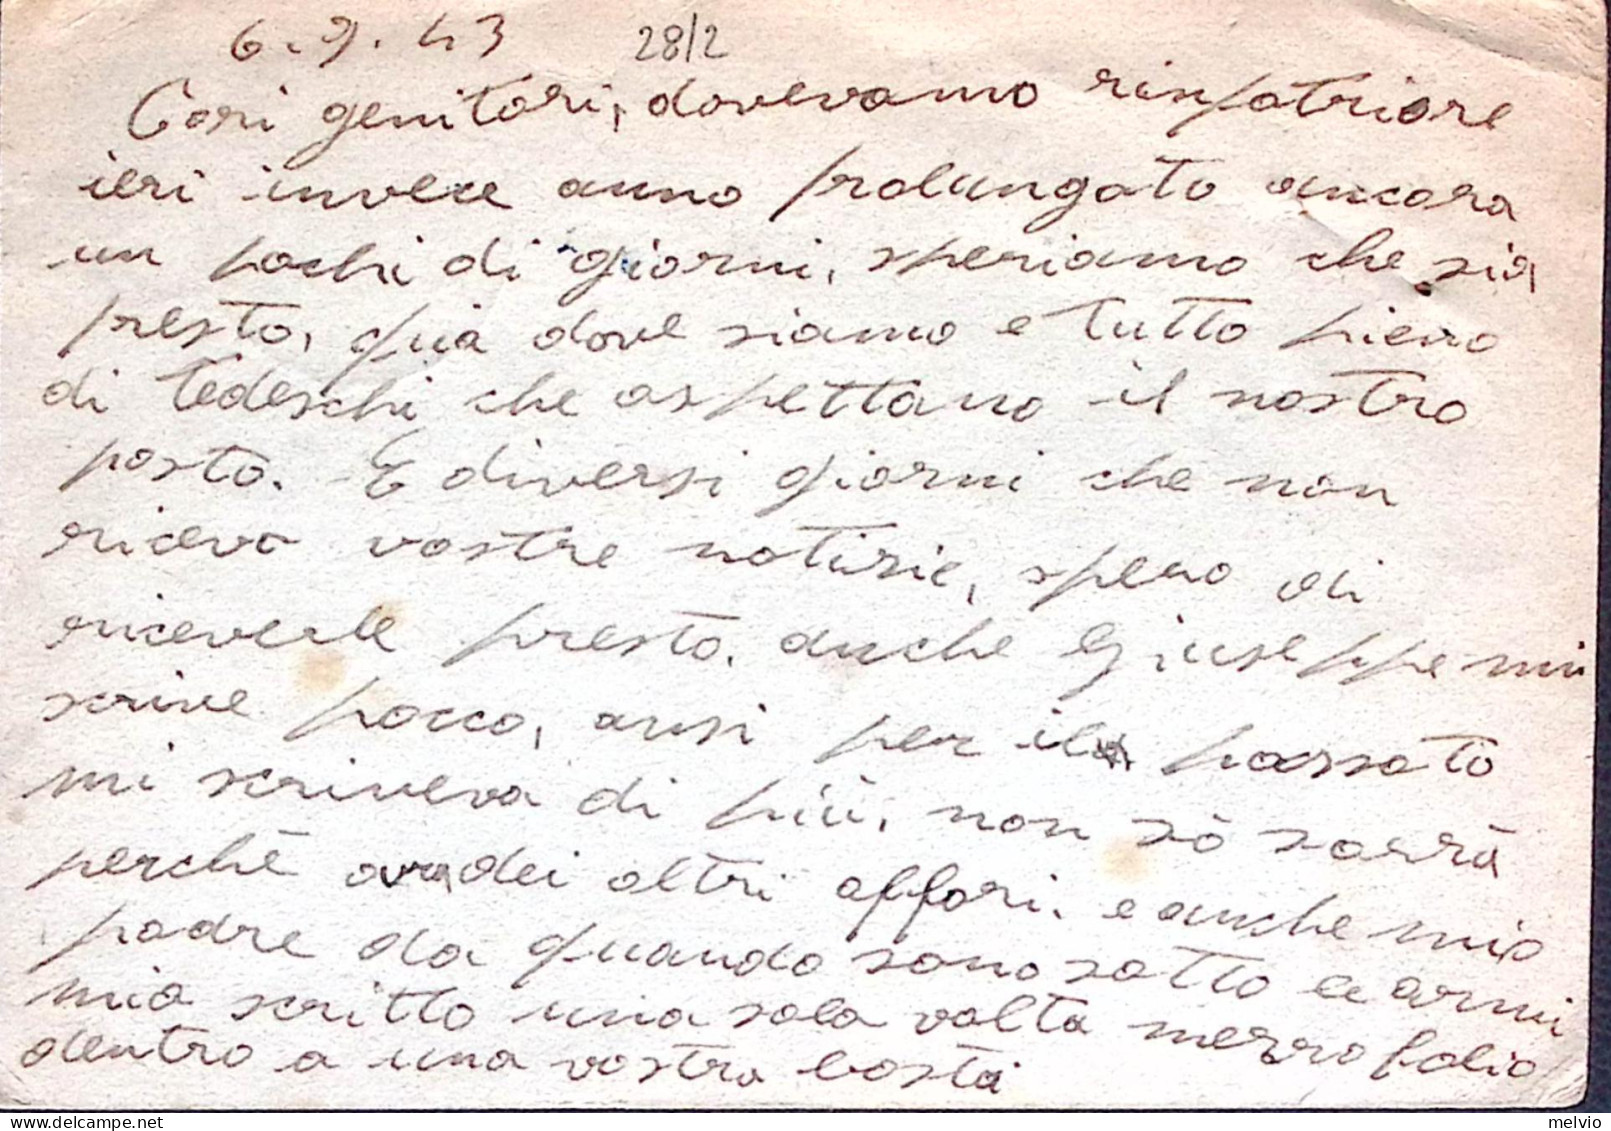 6.9.43 28/2
Cari genitori, dovevamo rinpatriare
ieri invece anno prolungato ancora
un pochi di giorni, speriamo che sia
presto, qua dove siamo e tutto pieno
di tedeschi che aspettano il nostro
posto. E diversi giorni che non
ricevo vostre notizie, spero di
riceverle presto. anche Giuseppe mi
scrive pocco, ansi per il passato
mi scriveva di più, non sò sarrà
perchè avra dei altri affari. e anche mio
padre da quando sono sotto le armi
mia scritto una sola volta mezzo folio
dentro a una vostra bosta
melvio